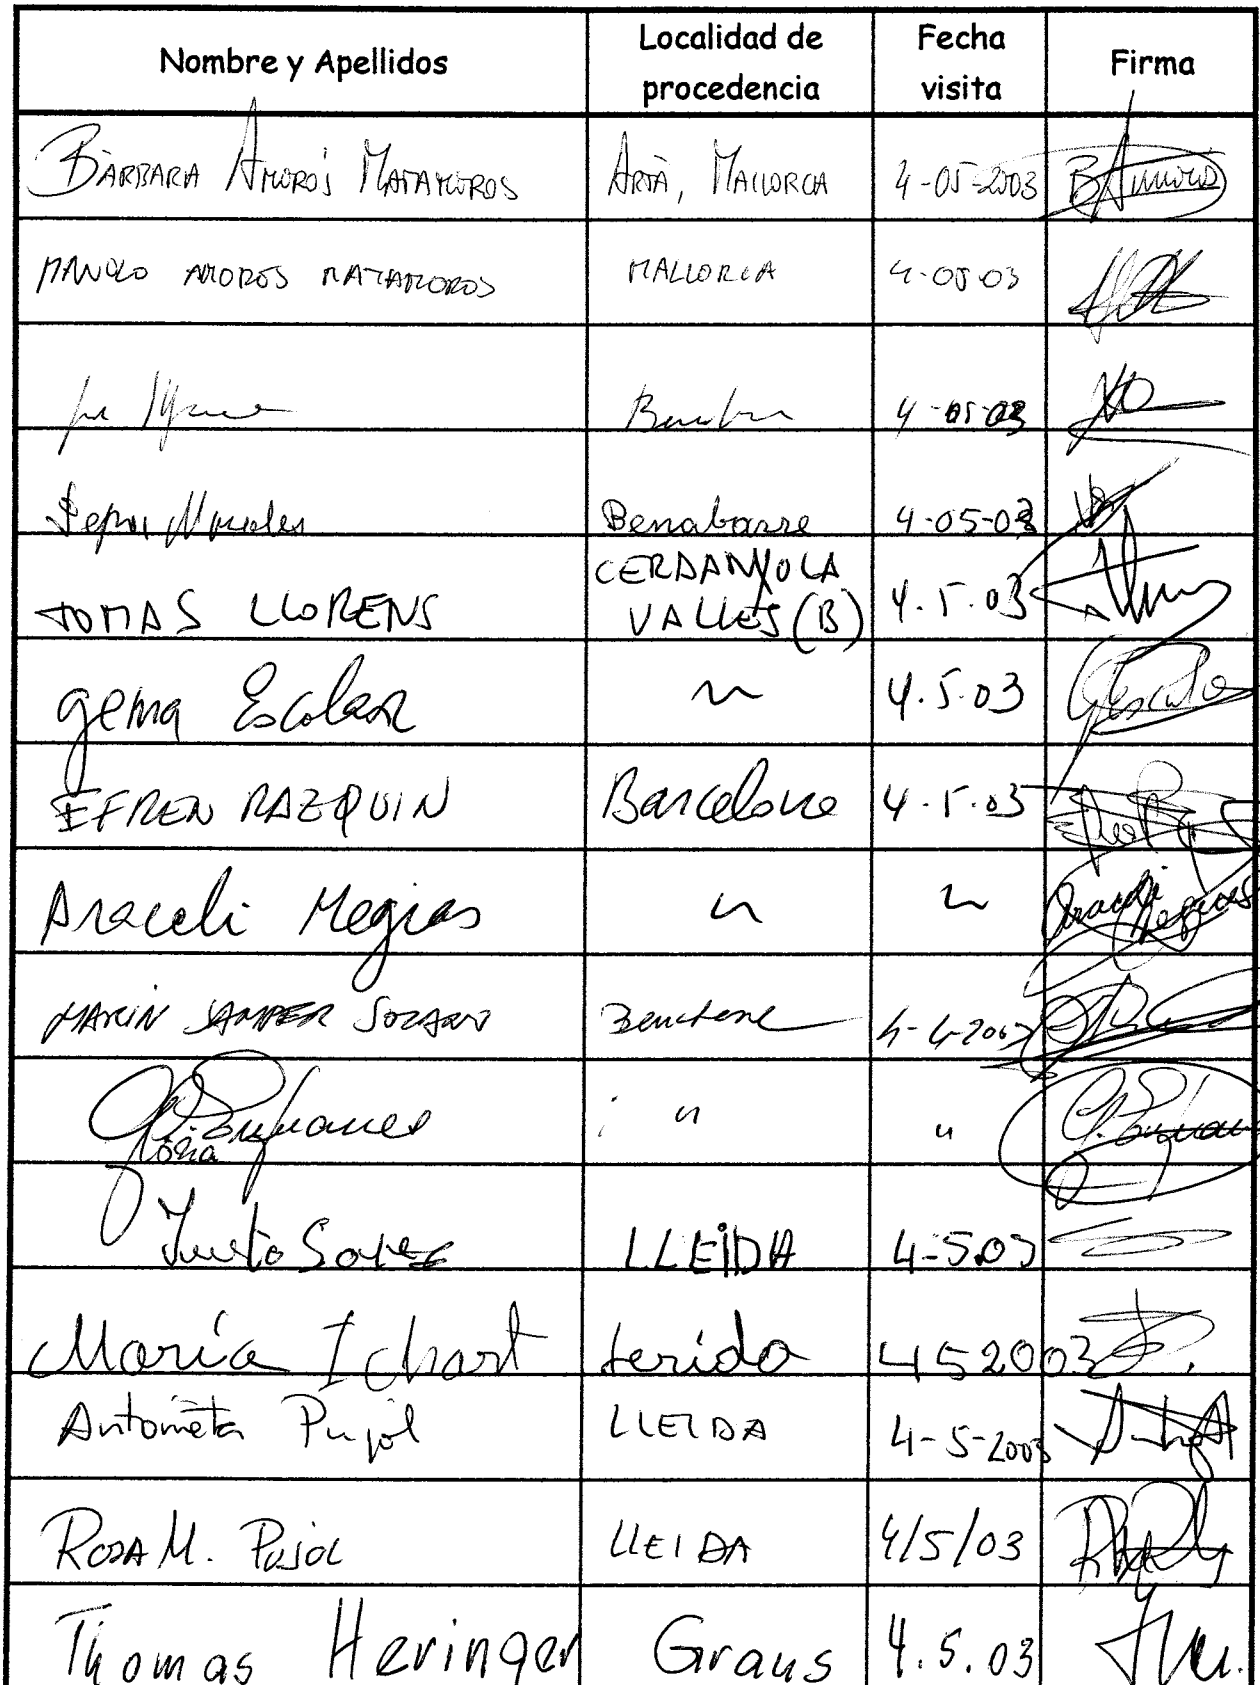 Nombre y Apellidos Localidad de procedencia Fecha visita Firma
BÀRBARA AMORÓS MATAMOROS ARTÀ, MALLORCA 4-05-2003 B Amorós
MANOLO AMOROS MATAMOROS MALLORCA 4-05-03
4-05-03
Morales Benabarre 4-05-03
TOMAS LLORENS CERDANYOLA VALLES (B) 4.5.03
gema Escolar 〃 4.5.03 G Escolar
EFREN RAZQUIN Barcelona 4.5.03
Araceli Megias 〃 〃 Araceli Megias
MARIN SAMPER 4-4-2003
Gloria 〃 〃
Justo LLEIDA 4-5-03
María Ichart Lerida 4 5 2003
Antonieta Pujol LLEIDA 4-5-2003
ROSA M. PUJOL LLEIDA 4/5/03
Thomas Heringer Graus 4.5.03